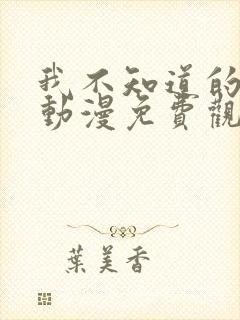 我不知道的
動漫免費觀
葉美香